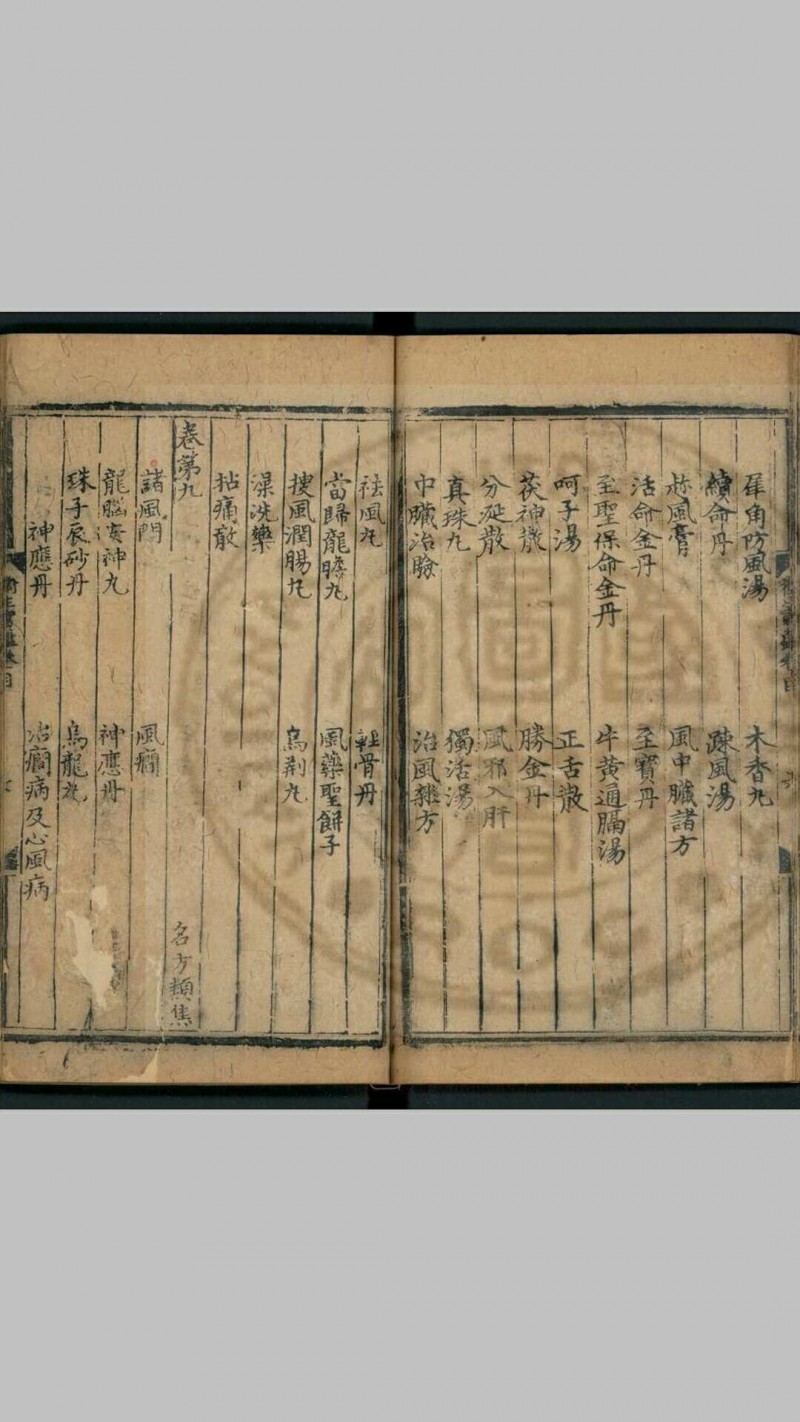 犀角防風湯　木香丸
續命丹　疎風湯
祛風膏　風中臟諸方
活命金丹　至寶丹
至聖保命金丹　牛黄通膈湯
呵子湯　正舌散
茯神散　勝金丹
分涎散　風邪入肝
真珠丸　獨活湯
中臟治驗　治風雜方
祛風丸　骨丹
當歸龍膽丸　風藥聖餅子
搜風潤腸丸　烏荆丸
澡洗藥
拈痛散
卷第九　名方類集
諸風門　風癇
龍腦安神丸　神應丹
珠子辰砂丹　烏龍丸
神應丹　治癇病及心風病